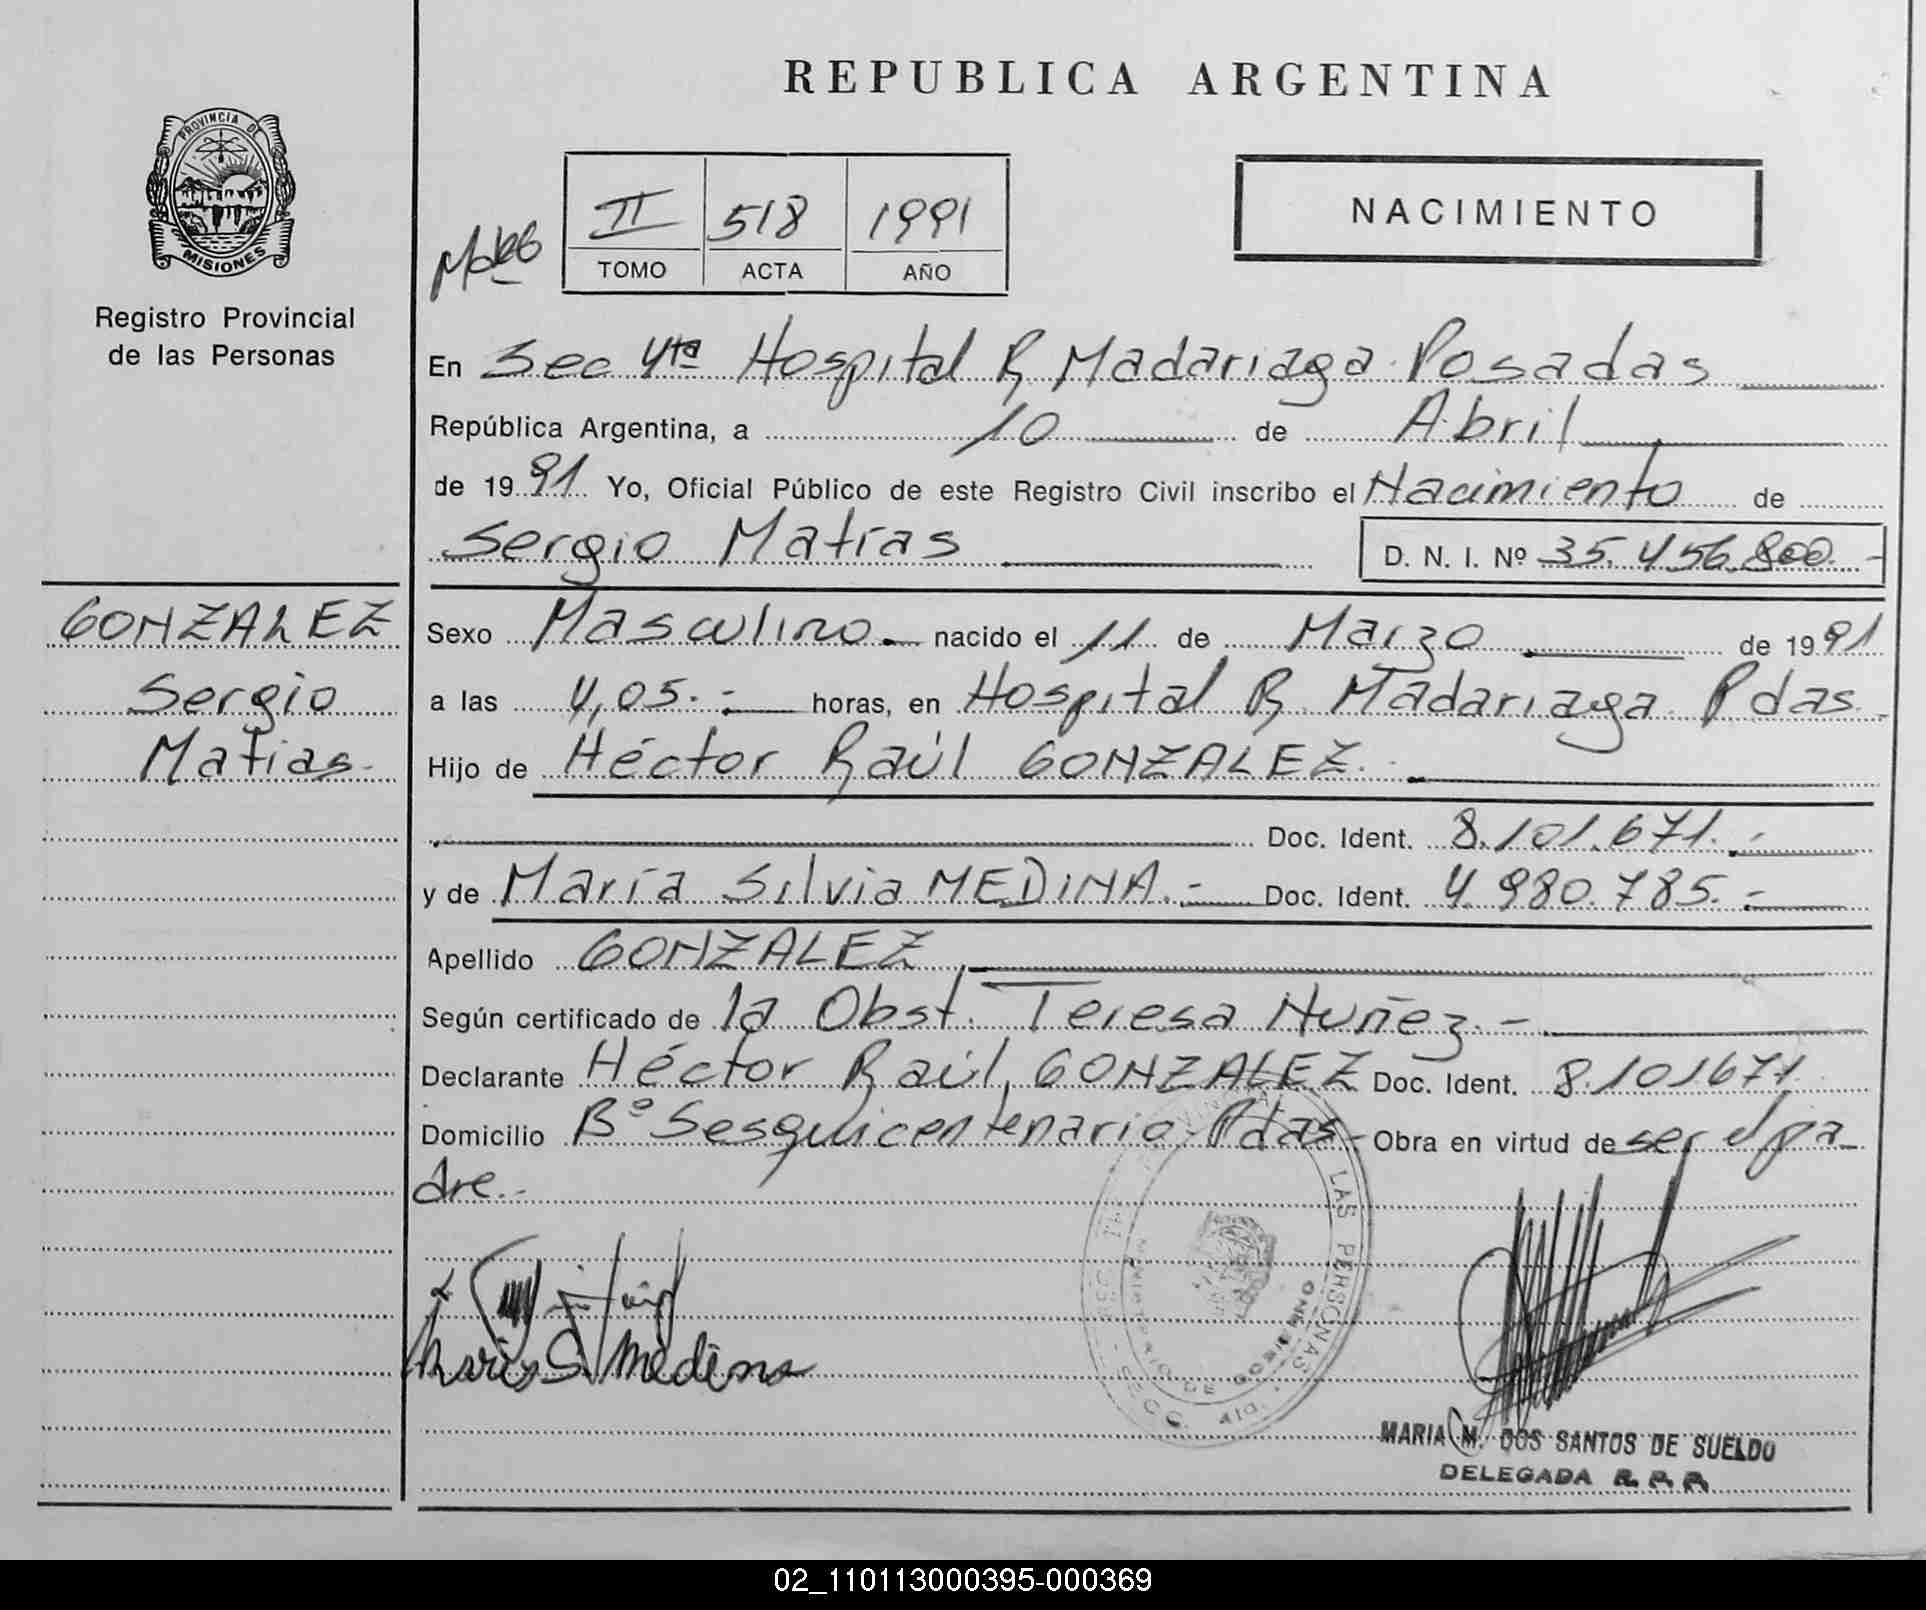 REPUBLICA ARGENTINA
PROVINCIA DE
MISIONES
Registro Provincial
de las Personas
II 518 1991
TOMO ACTA AÑO
NACIMIENTO
En Sec 4ta Hospital R. Madariaga Posadas
República Argentina, a 10 de Abril
de 1991 Yo, Oficial Público de este Registro Civil inscribo el Nacimiento de
Sergio Matías D. N. I. Nº 35.456.800.-
GONZALEZ
Sergio
Matias
Sexo Masculino.- nacido el 11 de Marzo de 1991
a las 4,05.- horas, en Hospital R. Madariaga Pdas
Hijo de Héctor Raúl GONZALEZ.-
Doc. Ident. 8.101.671.-
y de María Silvia MEDINA.- Doc. Ident. 4.980.785.-
Apellido GONZALEZ
Según certificado de la Obst. Teresa Nuñez.-
Declarante Héctor Raúl GONZALEZ Doc. Ident. 8.101671
Domicilio Bº Sesquicentenario-Pdas- Obra en virtud de ser el pa-
dre.-
LAS PERSONAS
MINISTERIO DE GOBIERNO
Maria S. Medina
MARIA M. DOS SANTOS DE SUELDO
DELEGADA R. P. P.
02_110113000395-000369